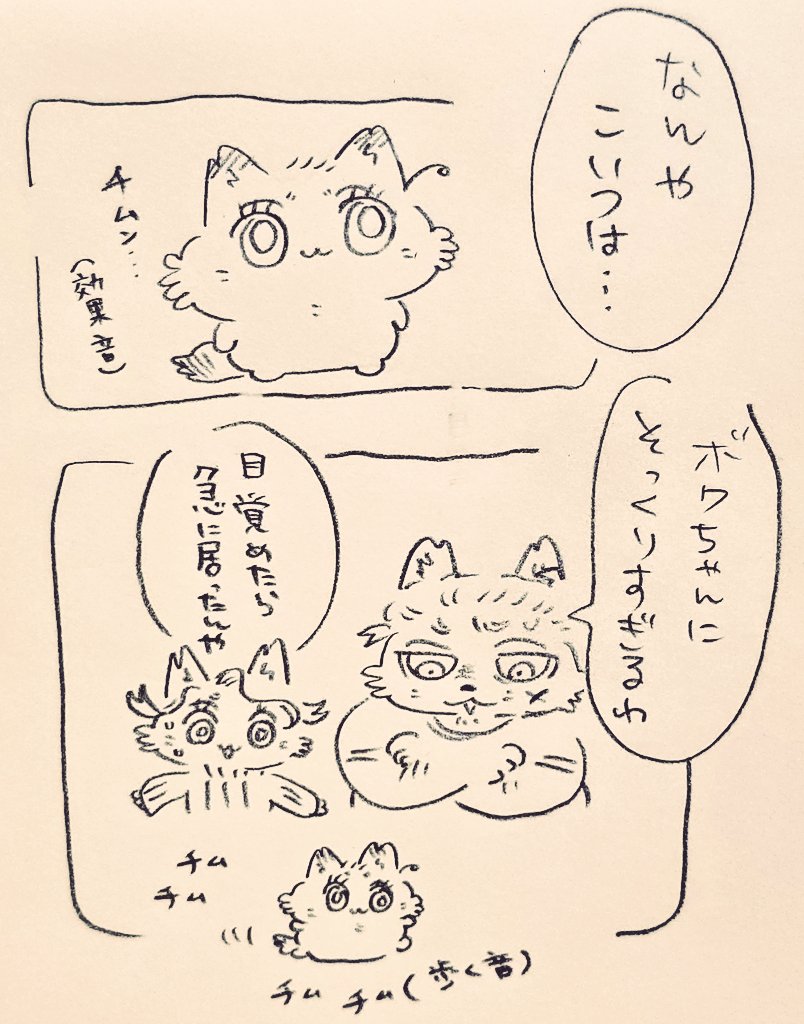 なんや
こいつは…
チムン…
(効果音)
ボクちゃんに
そっくりすぎるよ
目覚めたら
急に居ったんや
チム
チム
チム チム(歩く音)